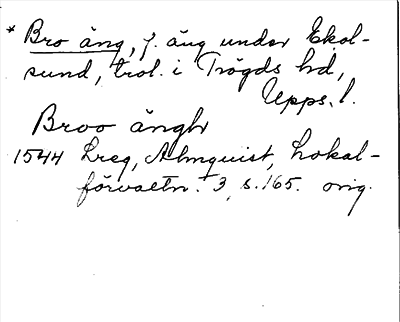 * Bro äng, f. äng under Ekol-
sund, trol. i Trögds hd,
Upps. l.
Broo ängh
1544 Lreg, Almquist, Lokal-
förvaltn. 3, s. 165. orig.